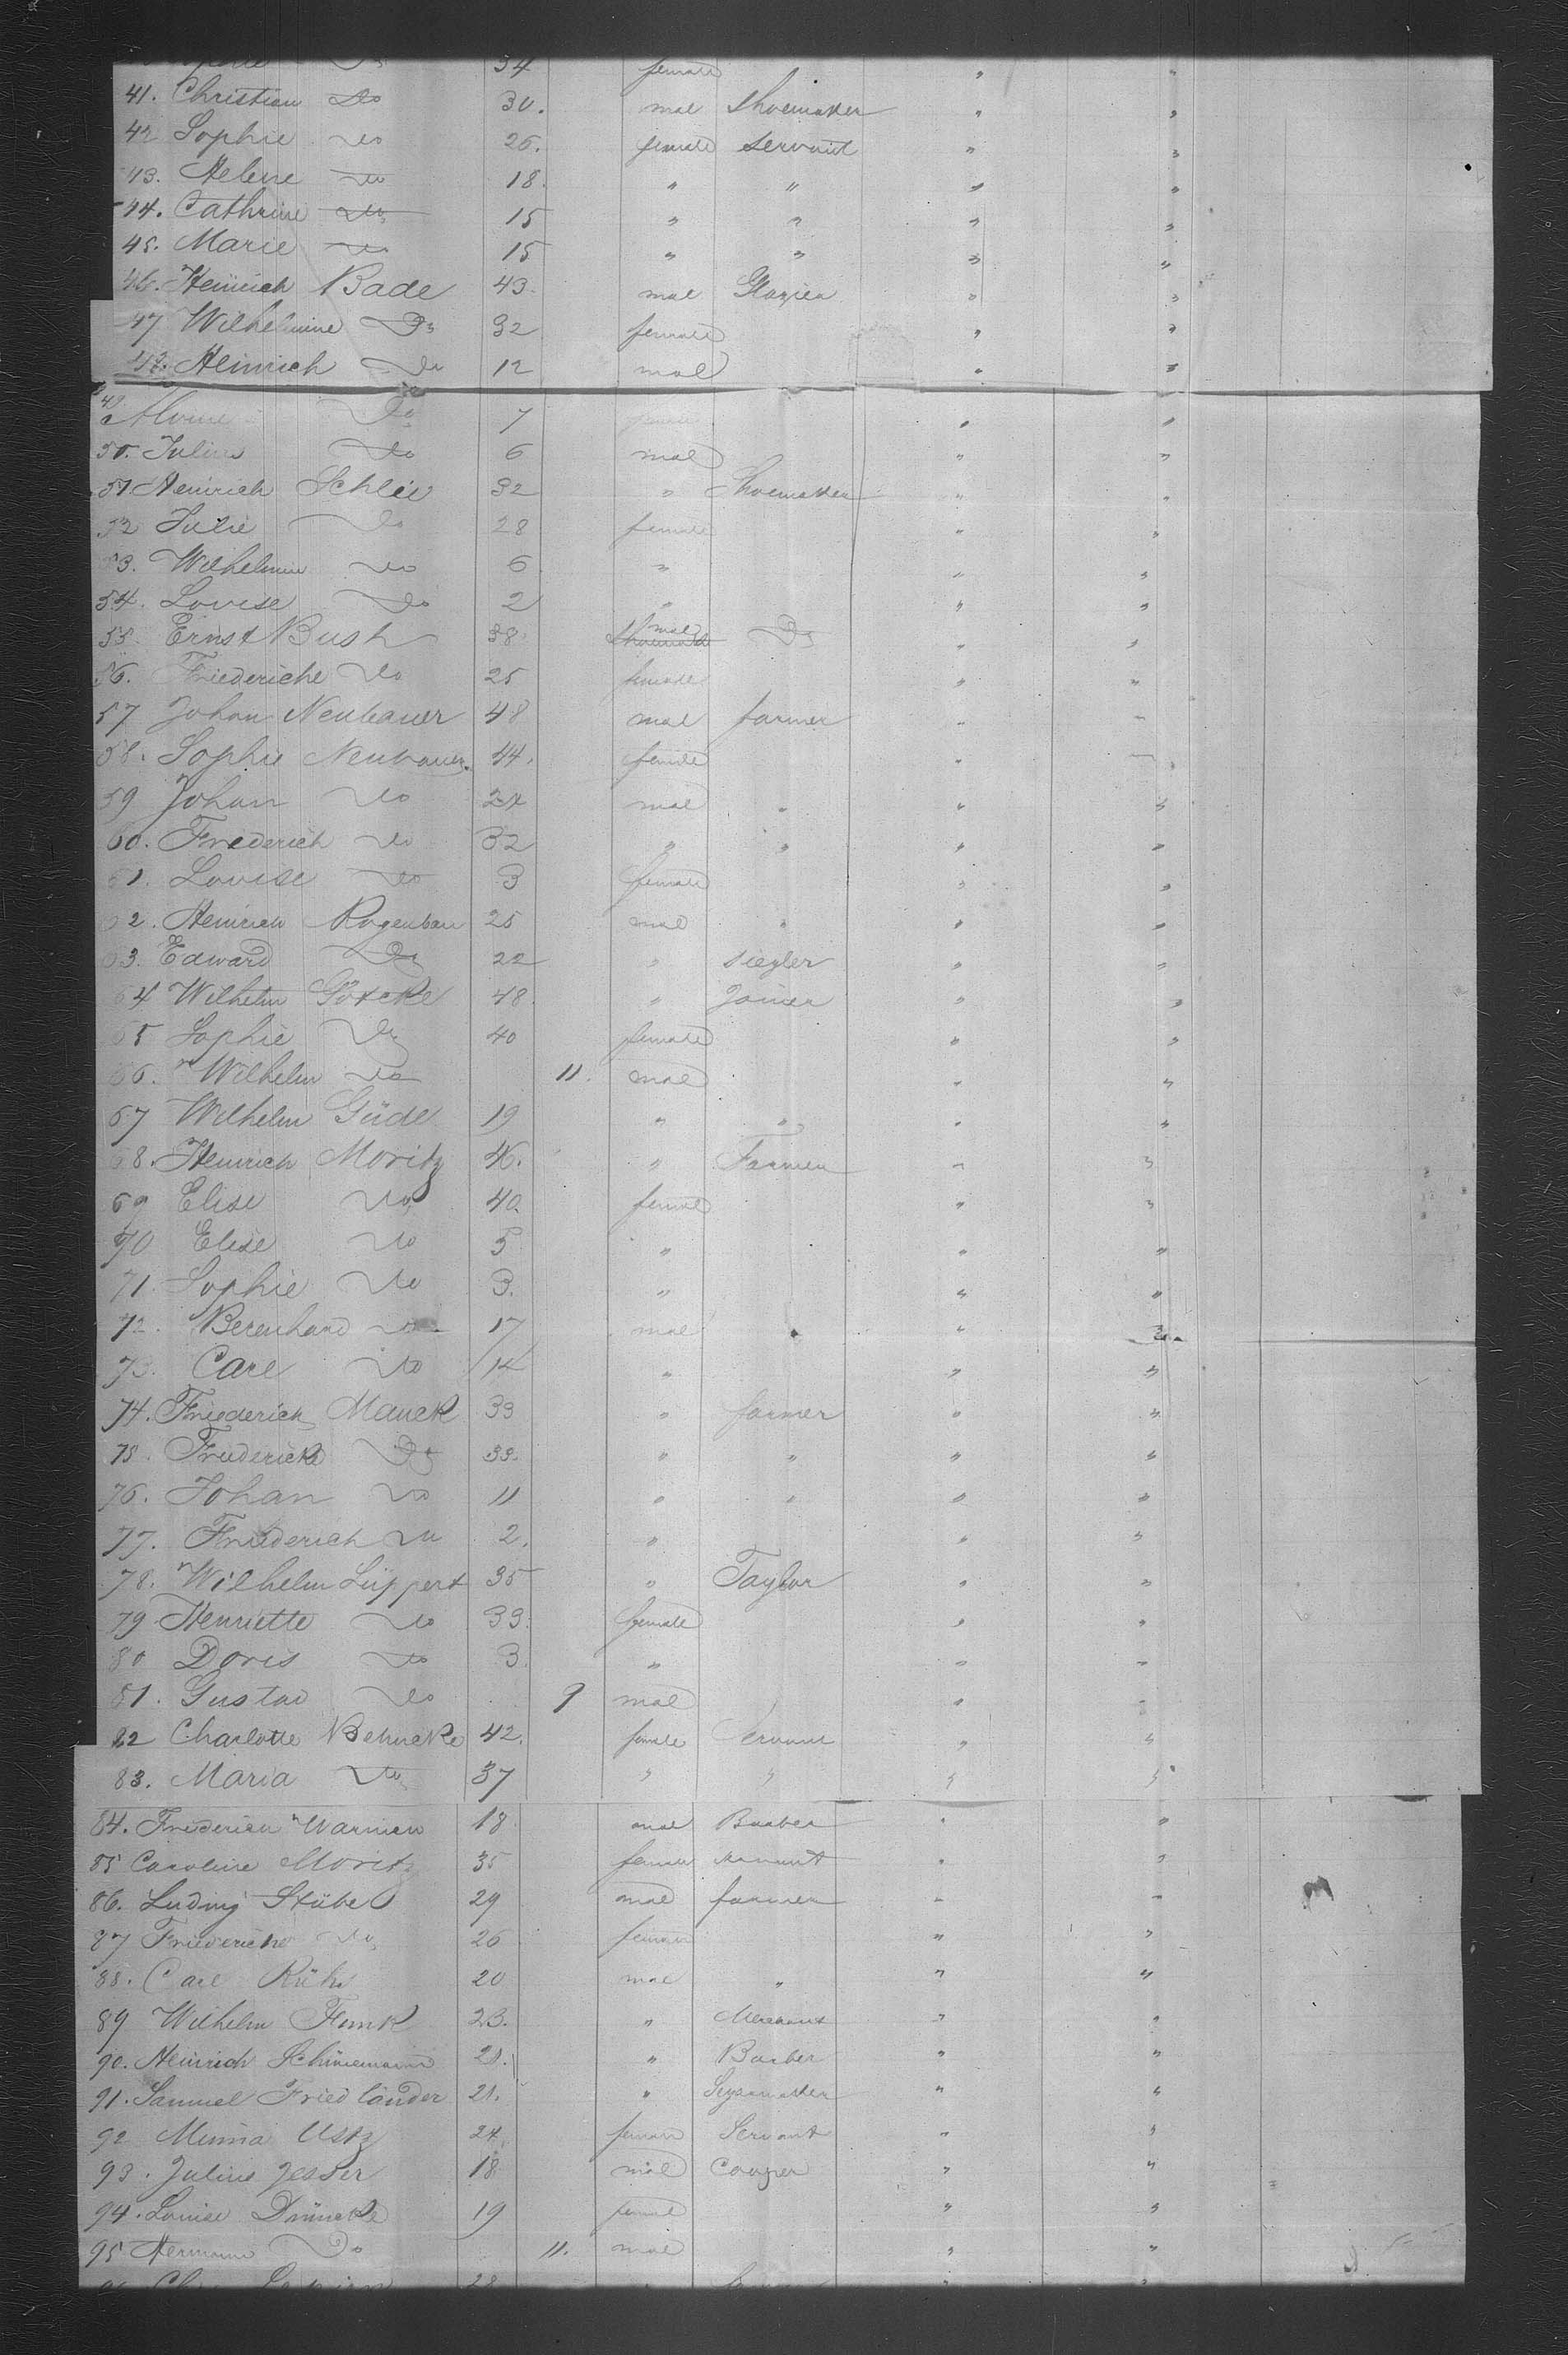 34 female " "
41. Christian Do 30. mal Shoemaker " "
42 Sophie do 26. female servant " "
43. Helene do 18. " " " "
44. Cathrine do 15 " " " "
45. Marie do 15 " " " "
46. Heinrich Bade 43. mal Glazier " "
47 Wilhelmine Do 32 female " "
48. Heinrich Do 12 mal " "
49 Do 7 " "
50. Julius Do 6 mal " "
51. Heinrich Schlie 32 " Shoemaker " "
52 Julie Do 28 female " "
53. Wilhelmin do 6 " " "
54. Lovise Do 2 " " "
55. Ernst Bush 38 mal Do " "
56. Friederiche do 25 female " "
57 Johan Neubauer 48 mal farmer " "
58. Sophie Neubauer. 44. female "
59 Johan do 24 mal " " "
60. Frederich do 32 " " " "
61. Lovise do 3 female " "
62. Heinrich Rogenbau 25 mal " " "
63. Edward Do 22 " siegler " "
64 Wilhelm Götcke 48 " Joiner " "
65 Sophie Do 40 female " "
66. Wilhelm do 11. mal " "
67 Wilhelm Güde 19 " " " "
68. Heinrich Moritz 46. " Farmer " "
69 Elise do 40. femal " "
70 Elise do 5 " " "
71. Sophie do 3. " " "
72. Berenhard do 17 mal " " "
73. Carl do 14 " " "
74. Friederich Mauck 33 " farmer " "
75. Friederike Do 33. " " " "
76. Johan do 11 " " " "
77. Friederich do 2. " " "
78. Wilhelm Lüppert 35 " Taylor " "
79 Henriette do 33. female " "
80 Doris do 3. " " "
81. Gustav do 9 mal " "
82 Charlotte Behncke 42. female Servant " "
83. Maria do 37 " " " "
84. Frederich Warnien 18 mal Barber " "
85 Caroline Moritz 35 female servant " "
86. Ludwig Stübe 29 mal farmer " "
87 Friederiche do 26 female " "
88. Carl Rühs 20 mal " " "
89 Wilhelm Funk 23. " Merchant " "
90. Heinrich Schünemann 21. " Barber " "
91. Samuel Friedländer 21. " " "
92 Minna Ustz 24. female Servant " "
93. Julius Jesser 18 mal Cooper " "
94. Louise Drüncke 19 femal " "
95 Hermann Do 11. mal " "
28